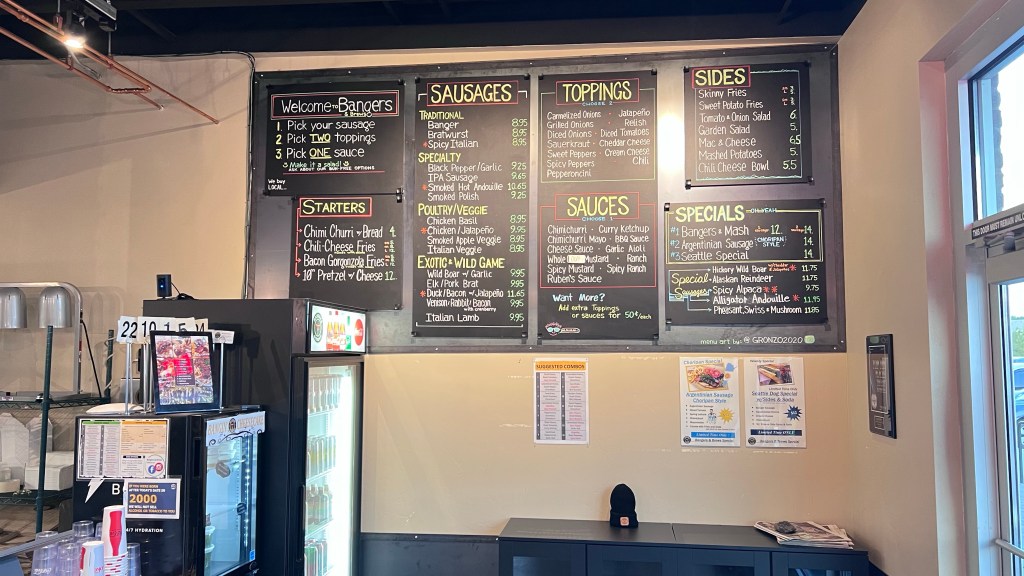 Welcome to Bangers
& Brews
1. Pick your sausage
2. Pick TWO toppings
3. Pick ONE sauce
Make it a salad!
ASK ABOUT OUR BUN-FREE OPTIONS
We buy
LOCAL
STARTERS
Chimi Churri w/ Bread 4.
Chili Cheese Fries
Bacon Gorgonzola Fries
10" Pretzel w/ Cheese 12.
SAUSAGES
TRADITIONAL
Banger 8.95
Bratwurst 8.95
* Spicy Italian 8.95
SPECIALTY
Black Pepper/Garlic 9.25
IPA Sausage 9.65
* Smoked Hot Andouille 10.65
Smoked Polish 9.25
POULTRY/VEGGIE
Chicken Basil 8.95
* Chicken/Jalapeño 9.95
Smoked Apple Veggie 8.95
Italian Veggie 8.95
EXOTIC & WILD GAME
Wild Boar w/ Garlic 9.95
Elk/Pork Brat 9.95
* Duck/Bacon w/ Jalapeño 11.65
Venison/Rabbit/Bacon 9.95
with cranberry
Italian Lamb 9.95
TOPPINGS
CHOOSE 2
Carmelized Onions · Jalapeño
Grilled Onions · Relish
Diced Onions · Diced Tomatoes
Sauerkraut · Cheddar Cheese
Sweet Peppers · Cream Cheese
Spicy Peppers · Chili
Pepperoncini
SAUCES
CHOOSE 1
Chimichurri · Curry Ketchup
Chimichurri Mayo · BBQ Sauce
Cheese Sauce · Garlic Aioli
Whole Mustard · Ranch
Spicy Mustard · Spicy Ranch
Ruben's Sauce
Want More?
Add extra Toppings
or sauces for 50¢/each
SIDES
Skinny Fries
Sweet Potato Fries
Tomato & Onion Salad 6.
Garden Salad 5.
Mac & Cheese 6.5
Mashed Potatoes 5.
Chili Cheese Bowl 5.5
SPECIALS OH YEAH
#1 Bangers & Mash 12. 14.
#2 Argentinian Sausage CHORIPAN STYLE 14.
#3 Seattle Special 14.
Special Sausages
Hickory Wild Boar 11.75
Alaskan Reindeer 11.75
Spicy Alpaca ** 9.75
Alligator Andouille * 11.95
Pheasant, Swiss & Mushroom 11.85
menu art by: @GRONZO2020
SUGGESTED COMBOS
Choripan Special
Argentinian Sausage
Choripan Style
Limited Time Only
Bangers & Brews Special
Seattle Dog Special
w/ Sides & Soda
Limited Time ONLY
Bangers & Brews Special
THIS DOOR MUST REMAIN UNLOCKED
IF YOU WERE BORN
AFTER TODAY'S DATE IN
2000
WE WILL NOT SELL
ALCOHOL OR TOBACCO TO YOU
HYDRATION